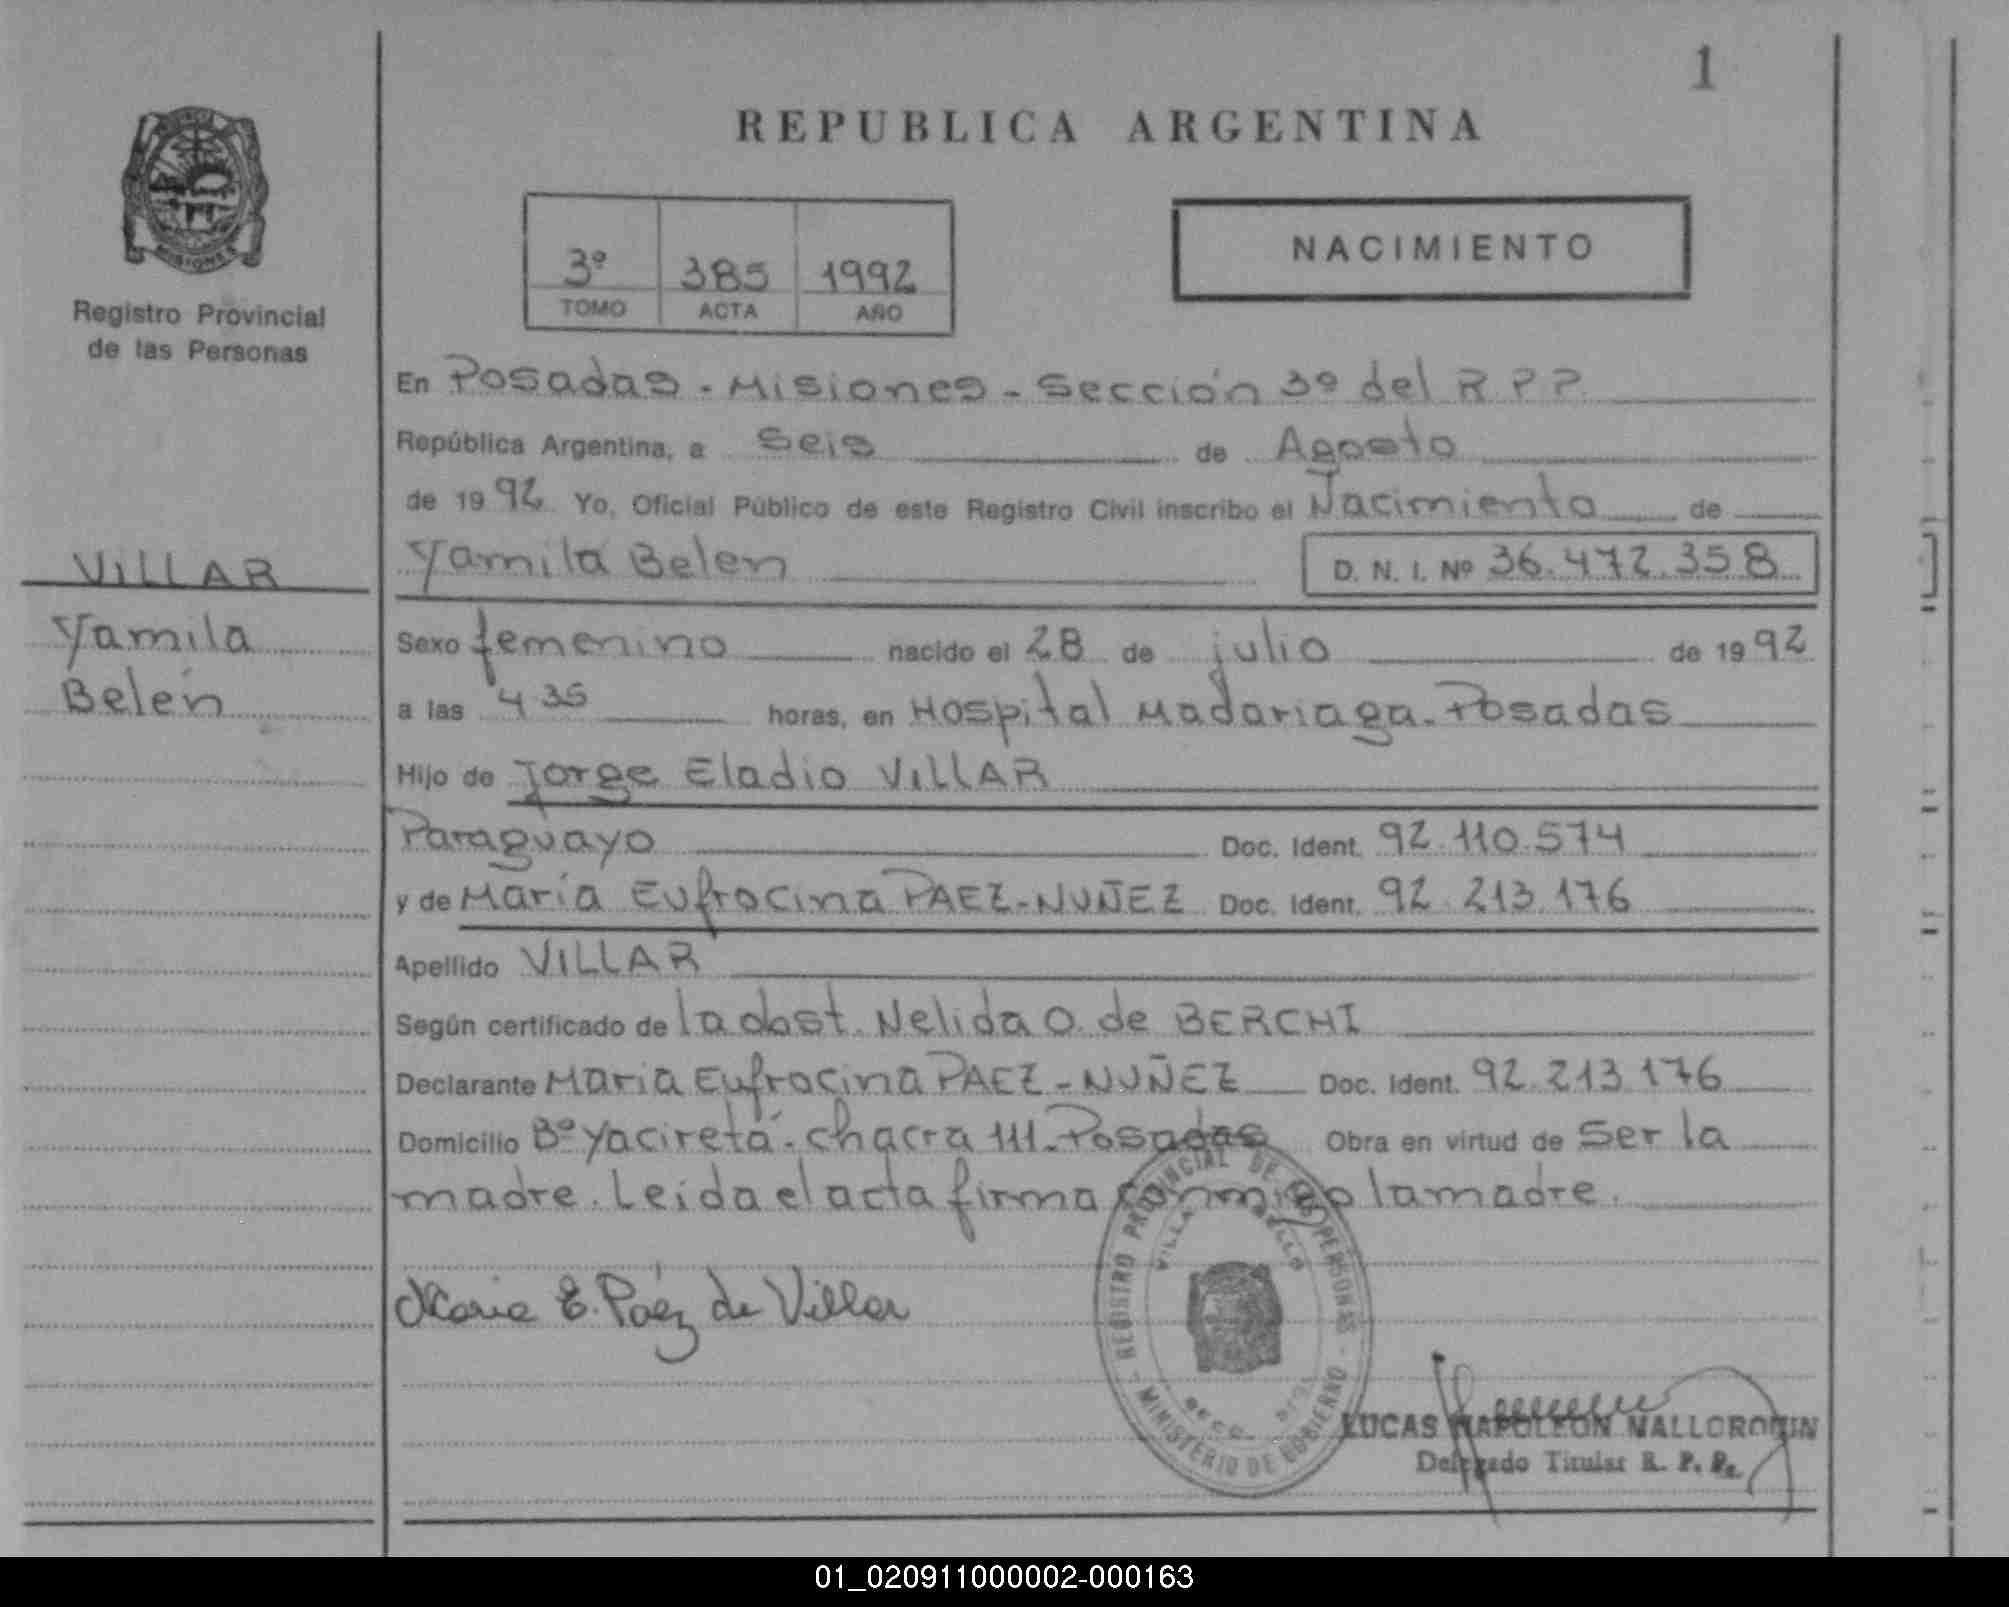 1
REPUBLICA ARGENTINA
MISIONES
Registro Provincial
de las Personas
3º 385 1992
TOMO ACTA AÑO
NACIMIENTO
En Posadas - Misiones - Sección 3º del R P P.
República Argentina, a Seis de Agosto
de 1992 Yo, Oficial Público de este Registro Civil inscribo el Nacimiento de
VILLAR
Yamila Belen D. N. I. Nº 36.472.358
Yamila
Belén
Sexo femenino nacido el 28 de julio de 1992
a las 4 35 horas, en Hospital Madariaga. Posadas
Hijo de Jorge Eladio VILLAR
Paraguayo Doc. Ident. 92.110.574
y de María Eufrocina PAEZ-NUÑEZ Doc. Ident. 92.213.176
Apellido VILLAR
Según certificado de la obst. Nelida O. de BERCHI
Declarante Maria Eufrocina PAEZ-NUÑEZ Doc. Ident. 92.213.176
Domicilio Bº Yacireta - chacra 111. Posadas Obra en virtud de Ser la
madre. Leida el acta firma conmigo la madre.
Maria E. Paéz de Villar
REGISTRO PROVINCIAL DE LAS PERSONAS
MINISTERIO DE GOBIERNO
VILLA
LUCAS NAPOLEON MALLORQUIN
Delegado Titular R. P. P.
01_020911000002-000163